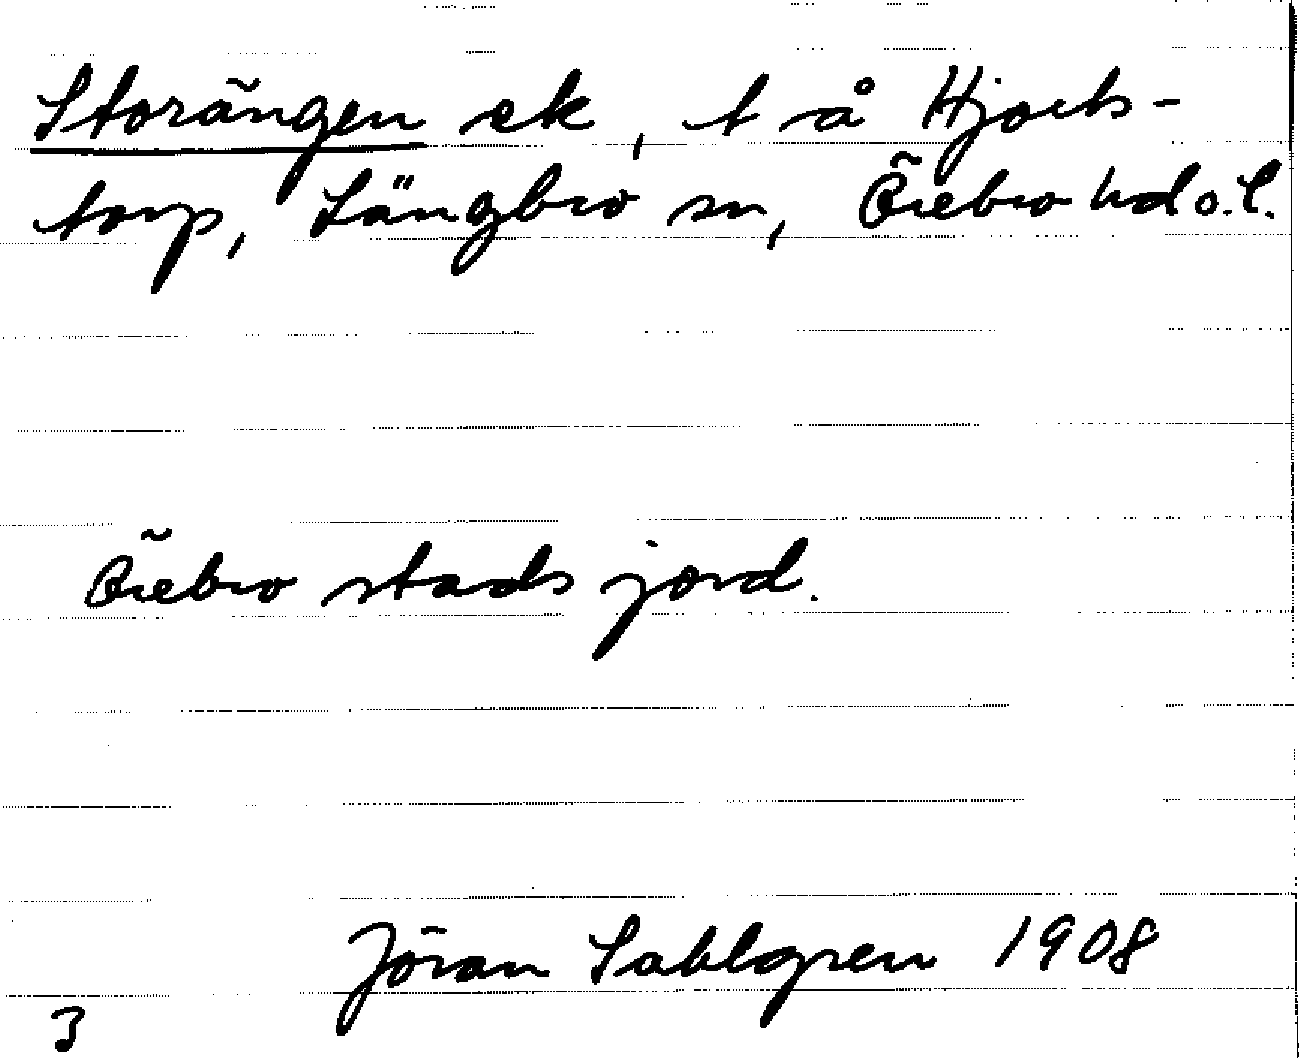 Storängen ek, t å Hjorts-
torp, Längbro sn, Örebro hd o. l.
Örebro stads jord.
Jöran Sahlgren 1908
3